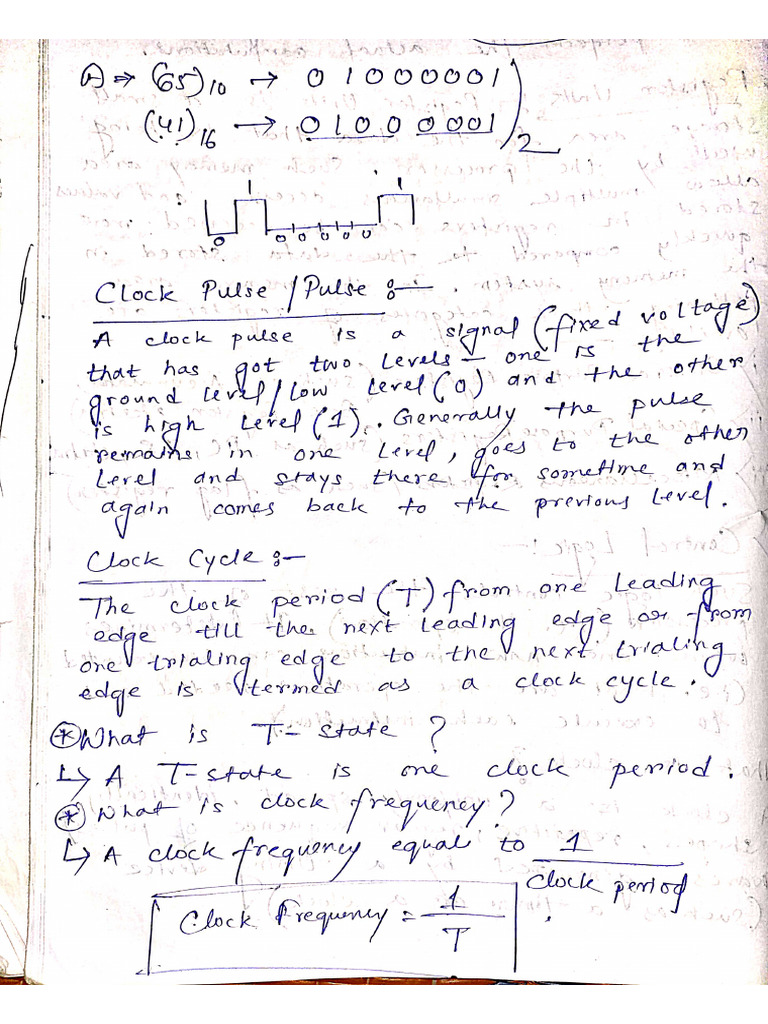 A ⇒ (65)10 → 01000001
(41)16 → 01000001)2
1 1
0 0 0 0 0 0
Clock Pulse / Pulse :-
A clock pulse is a signal (fixed voltage)
that has got two levels - one is the
ground level/low level (0) and the other
is high level (1). Generally the pulse
remains in one level, goes to the other
level and stays there for sometime and
again comes back to the previous level.
Clock Cycle :-
The clock period (T) from one leading
edge till the next leading edge or from
one trialing edge to the next trialing
edge is termed as a clock cycle.
* What is T-state ?
↳ A T-state is one clock period.
* What is clock frequency?
↳ A clock frequency equal to 1
clock period
Clock Frequency = 1
T